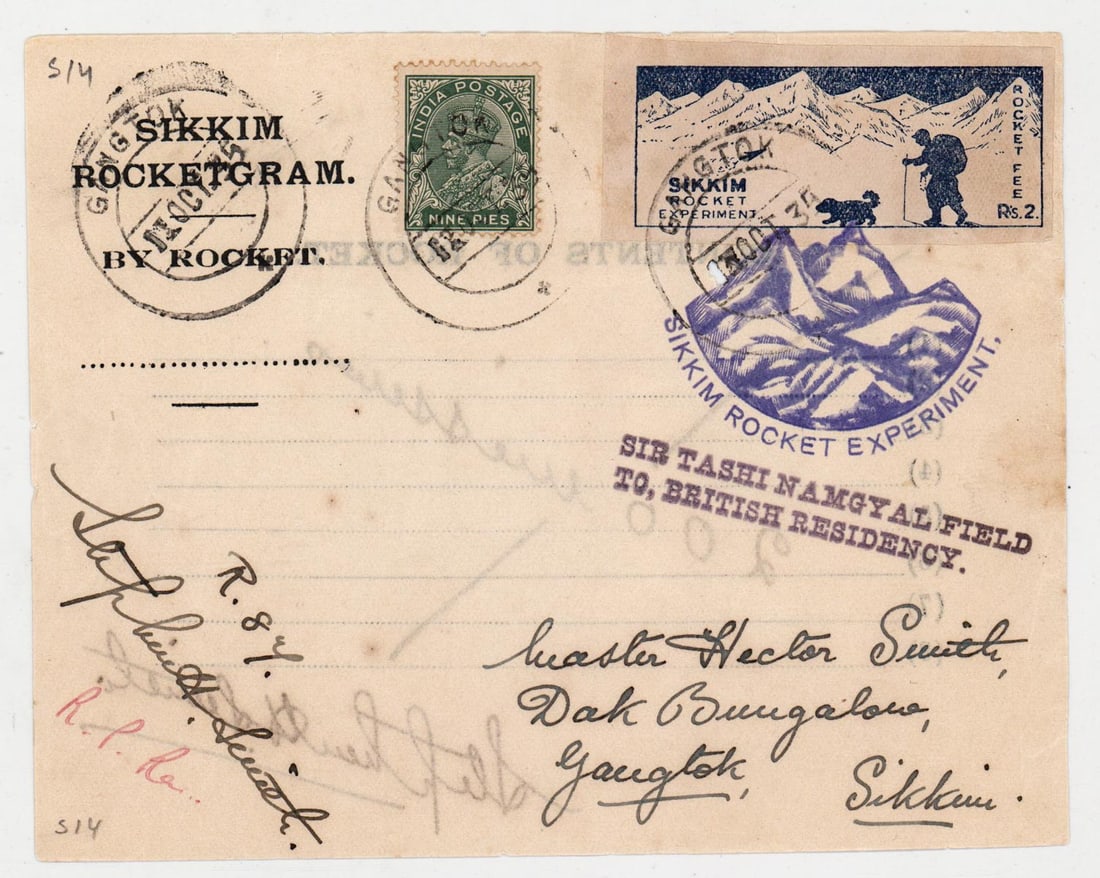 S/4
GANGTOK
OCT. 35
SIKKIM
ROCKETGRAM.
BY ROCKET.
INDIA POSTAGE
NINE PIES
GANGTOK
ROCKET FEE
Rs. 2.
SIKKIM
ROCKET
EXPERIMENT.
GANGTOK
OCT. 35
CONTENTS OF ROCKET.
SIKKIM ROCKET EXPERIMENT.
SIR TASHI NAMGYAL FIELD
TO, BRITISH RESIDENCY.
(4)
(7)
200
Stephen H. Smith.
R. 87.
Stephen H. Smith.
R. P. Ra..
Master Hector Smith,
Dak Bungalow,
Gangtok,
Sikkim.
S14